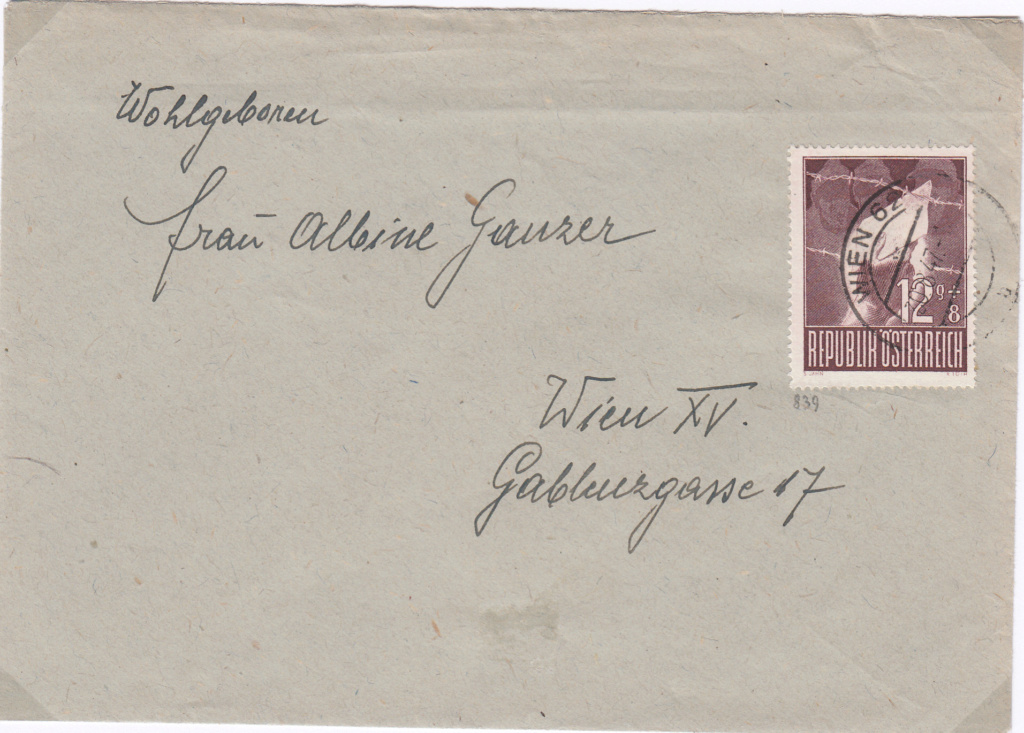 Wohlgeboren
Frau Albine Ganzer
WIEN 62
12g+8
REPUBLIK ÖSTERREICH
839
Wien XV.
Gablenzgasse 17